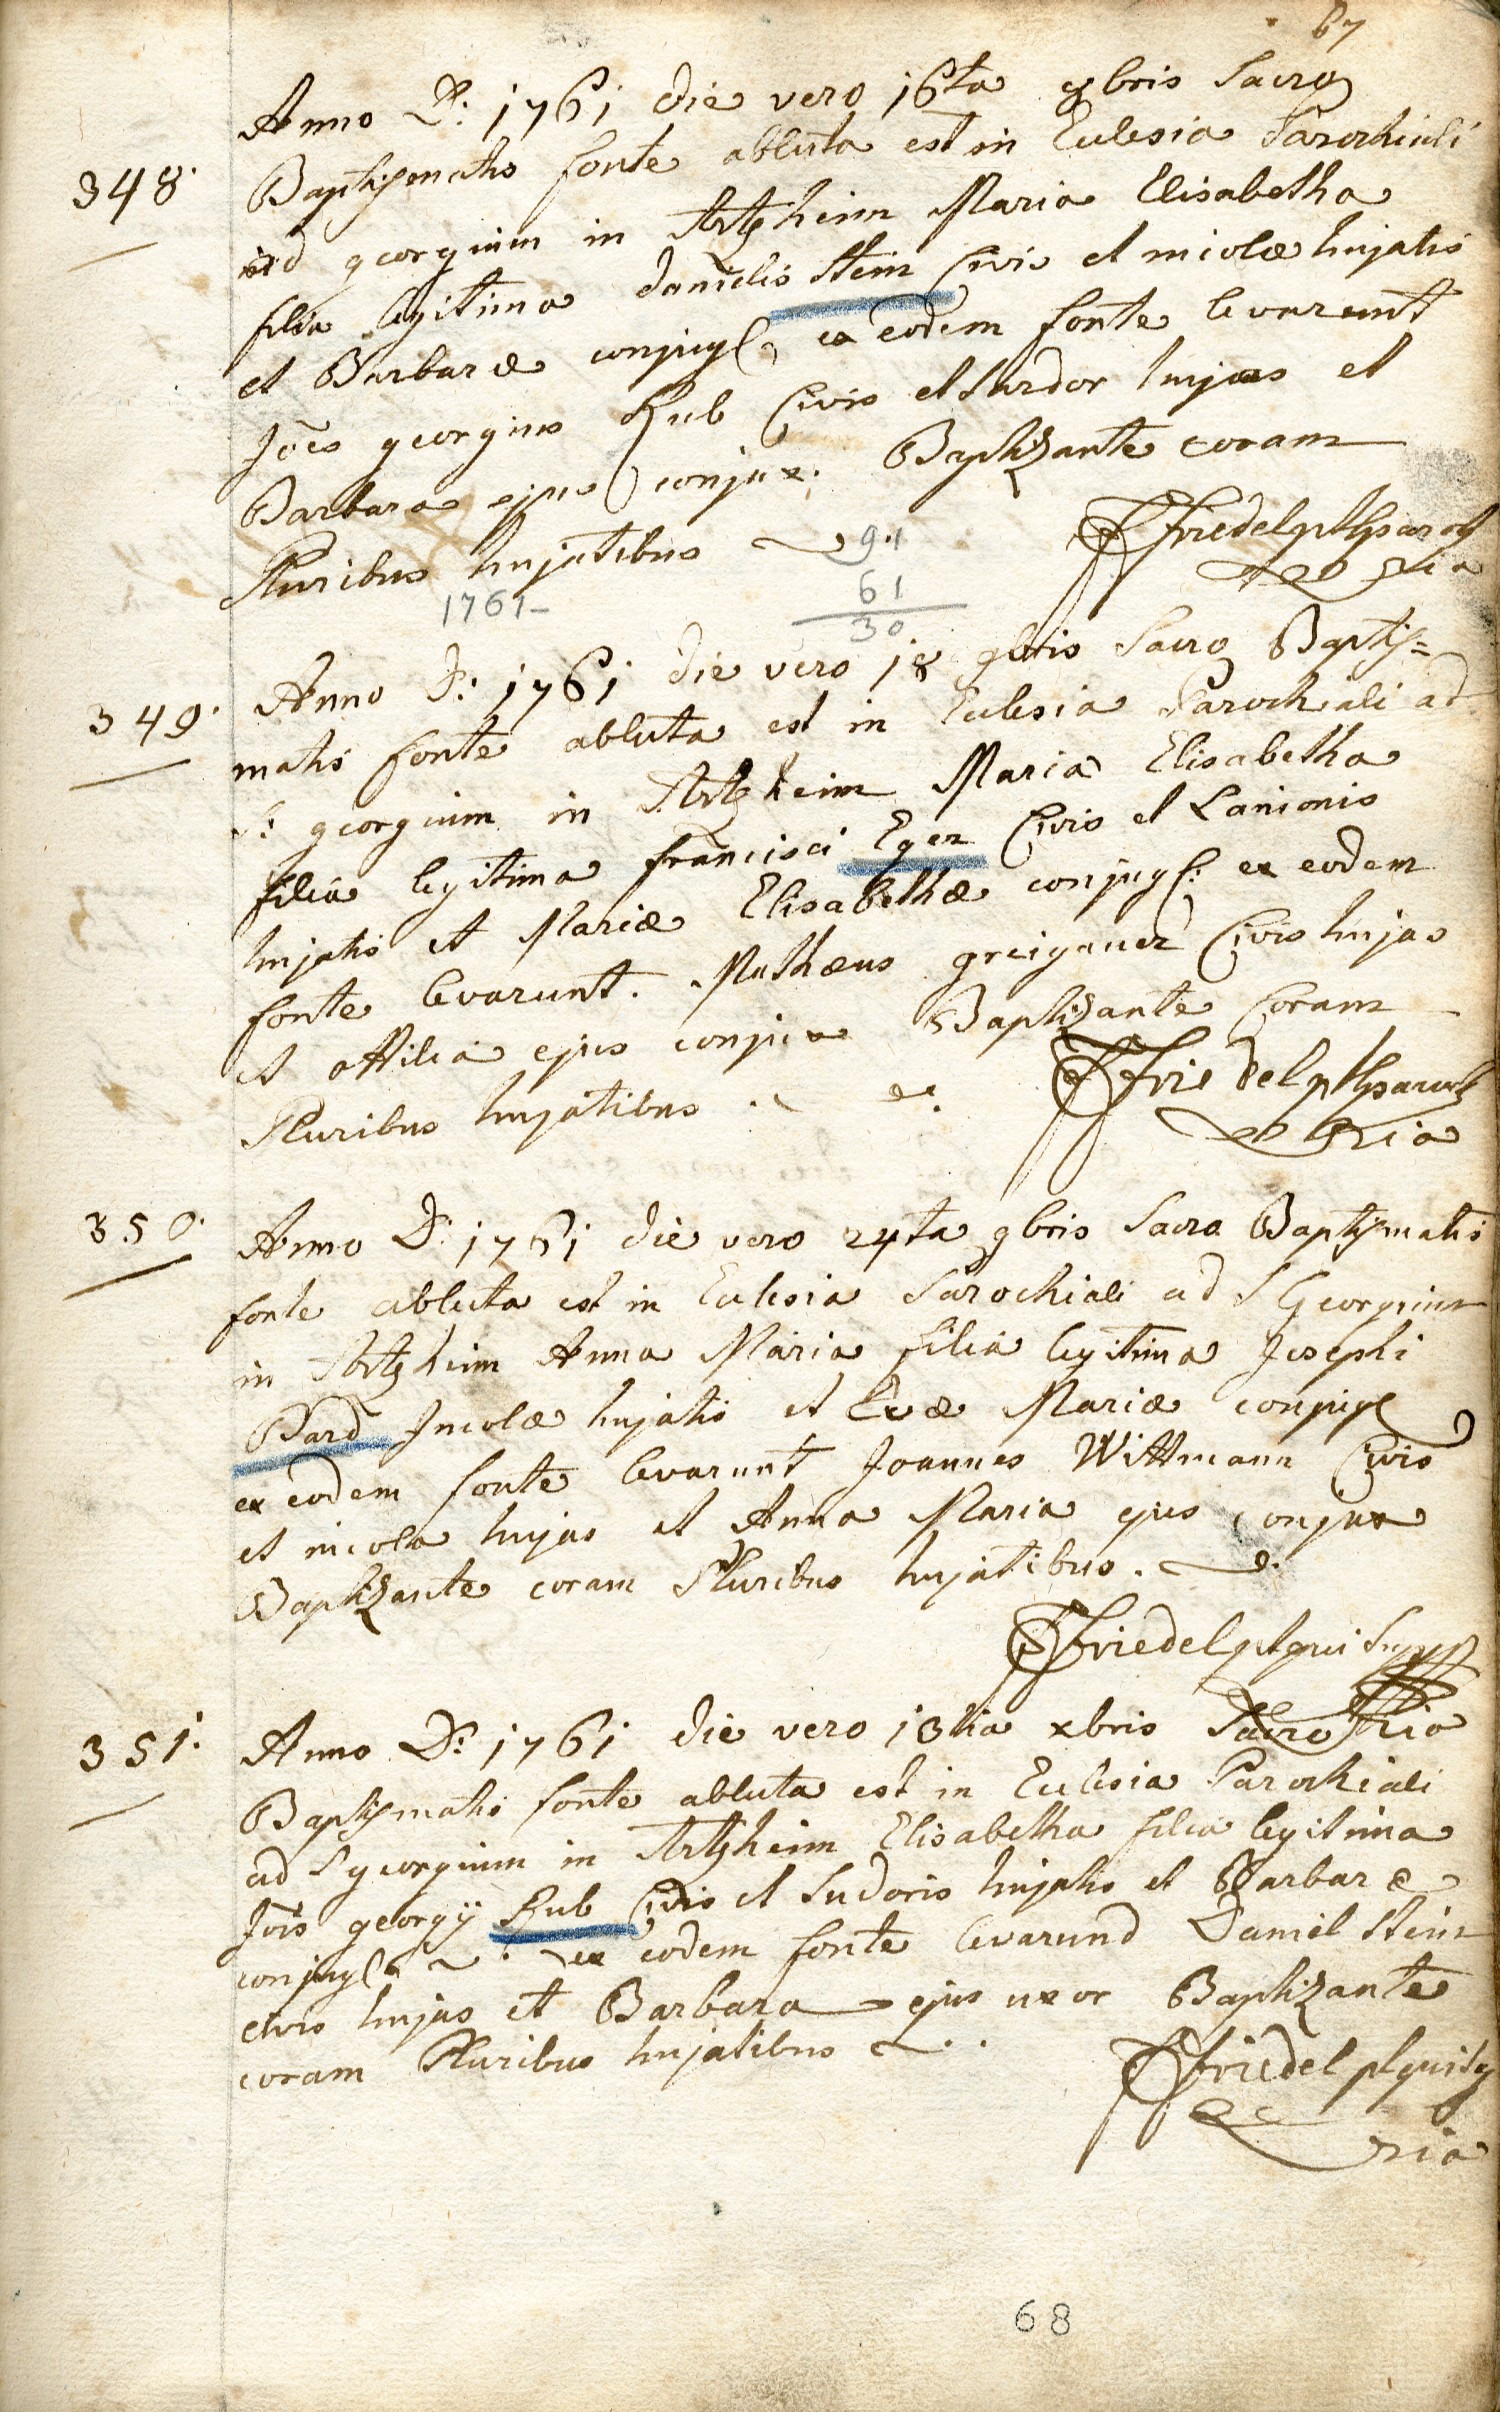 67
Anno D: 1761 die vero 16ta 9bris Sacro
348. Baptismatis fonte abluta est in Ecclesia Parochiali
ad georgium in Artzheim Maria Elisabetha
filia legitima danielis Stein Civis et incolæ hujatis
et Barbaræ conjug. ex eodem fonte levarunt
Jões georgius Rub Civis et sudor hujas et
Barbara ejus conjux. Baptizante coram
Pluribus hujatibus
F Friedel
1761-
91
61
30
Anno D: 1761 die vero 18 9bris Sacro Baptis=
349. matis fonte abluta est in Ecclesia Parochiali ad
S: georgium in Artzheim Maria Elisabetha
filia legitima francisci Eger Civis et Lanionis
hujatis et Mariæ Elisabethæ conjug: ex eodem
fonte levarunt. Mathæus greigauer Civis hujas
et ottilia ejus conjux Baptizante Coram
Pluribus hujatibus.
F Friedel
350. Anno D: 1761 die vero 24ta 9bris Sacro Baptismatis
fonte abluta est in Ecclesia Parochiali ad S Georgium
in Artzheim Anna Maria filia legitima Josephi
Bard Incolæ hujatis et Evæ Mariæ conjug
ex eodem fonte levarunt Joannes Wittmann Civis
et incola hujas et Anna Maria ejus conjux
Baptizante coram Pluribus hujatibus.
F Friedel
351. Anno D: 1761 die vero 13tia xbris Sacro
Baptismatis fonte abluta est in Ecclesia Parochiali
ad S georgium in Artzheim Elisabetha filia legitima
Jõis georgÿ Rub Civis et Sudoris hujatis et Barbaræ
conjug. ex eodem fonte levarund Daniel Stein
civis hujas et Barbara ejus uxor Baptizante
coram Pluribus hujatibus
F Friedel
68